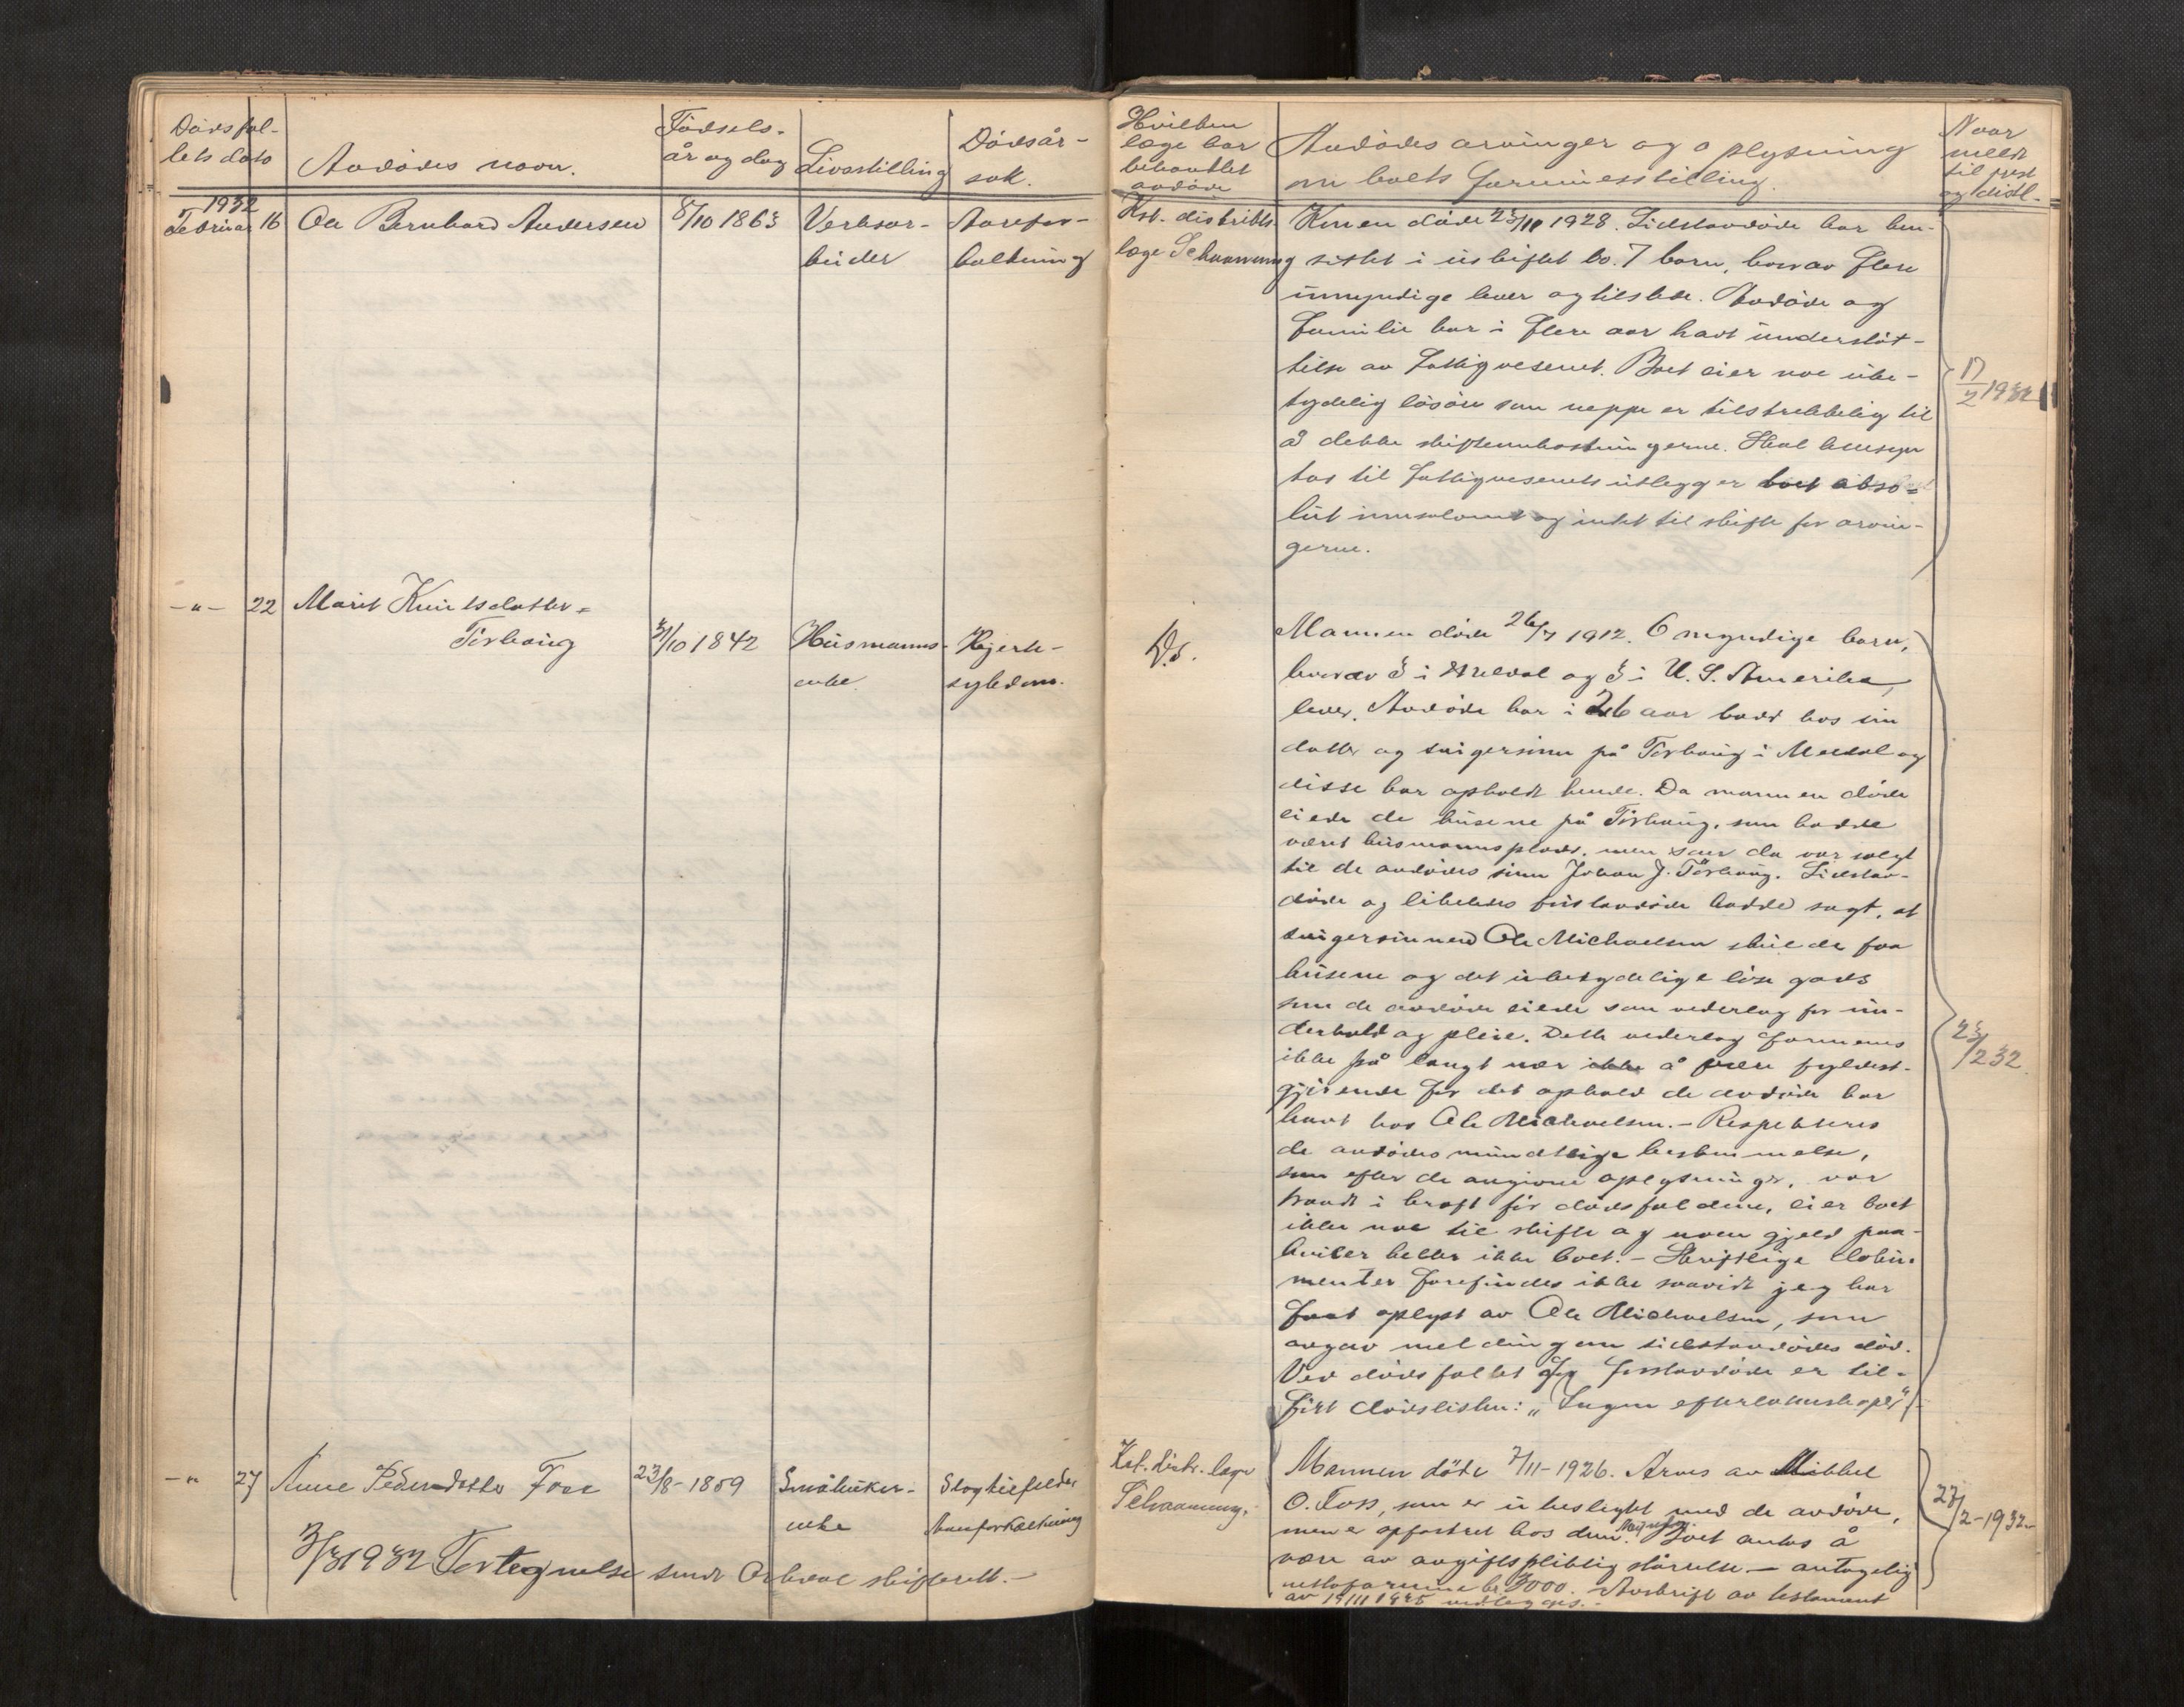 Dødsfal-
lets dato
Avdødes navn.
Fødsels-
år og dag
Livsstilling
Dødsår-
sak.
1932
Februar 16
Ole Bernhard Andersen
8/10 1863
Verksar-
beider
Aarefor-
kalkning
-"- 22
Marit Knutsdatter-
Tørhaug
3/10 1842
Husmanns-
enke
Hjerte-
sykdom.
-"- 27
Anne Pedersdatter Foss
23/8-1859
Småbruker-
enke
Slagtilfelder
Aareforkalkning
3/3 1932 Fortegnelse sendt Orkdal skifterett.-
Hvilken
læge har
behandlet
avdøde
Avdødes arvinger og oplysning
om boets formuesstilling.
Naar
meldt
til prest
og distl.
Kst. distrikts-
læge Schaanning
Konen døde 23/11 1928. Sidstavdøde har hen-
sittet i uskiftet bo. 7 barn, hvorav flere
umyndige lever og tilstede. Avdøde og
familie har i flere aar havt understøt-
telse av Fattigvesenet. Boet eier noe ube-
tydelig løsøre som neppe er tilstrekkelig til
å dekke skifteomkostningerne. Skal hensyn
tas til Fattigvesenets utlegg er boet abso-
lut insolvent og intet til skifte for arvin-
gerne.
17/2 1932
Do.
Mannen døde 26/7 1912. 6 myndige barn,
hvorav 3 i Meldal og 3 i U. S. Amerika,
lever. Avdøde har i 26 aar bodd hos sin
datter og svigersønn på Tørhaug i Meldal og
disse har opholdt hende. Da mannen døde
eiede de husene på Tørhaug, som hadde
været husmannsplads, men som da var solgt
til de avdødes sønn Johan J. Tørhaug. Sidstav-
døde og likeledes førstavdøde hadde sagt, at
svigersønnen Ole Michaelsen skulde faa
husene og det ubetydelige løse gods
som de avdøde eiede som vederlag for un-
derhold og pleie. Dette vederlag formenes
ikke på langt nær å være fyldest-
gjørende for det ophold de avdøde har
havt hos Ole Michaelsen.- Respekteres
de avdødes mundtlige bestemmelse,
som efter de angivne oplysninger, var
traadt i kraft før dødsfaldene, eier boet
ikke noe til skifte og noen gjeld paa-
hviler heller ikke boet.- Skriftlige doku-
menter forefindes ikke saavidt jeg har
faat oplyst av Ole Michaelsen, som
avgav melding om sidstavdødes død.
Ved dødsfallet førstavdøde er til-
ført dødslisten: „Ingen efterladenskaper"
23/2 32.
Kst. distr. læge
Schaanning.
Mannen døde 7/11-1926. Arves av Mikkel
O. Foss, som er ubeslegtet med de avdøde,
men er opfostret hos dem. Boet antas å
være av avgiftspliktig størrelse - antagelig
nettoformue kr. 3000. Avskrift av testament
av 19/11 1925 vedlegges.-
27/2-1932-